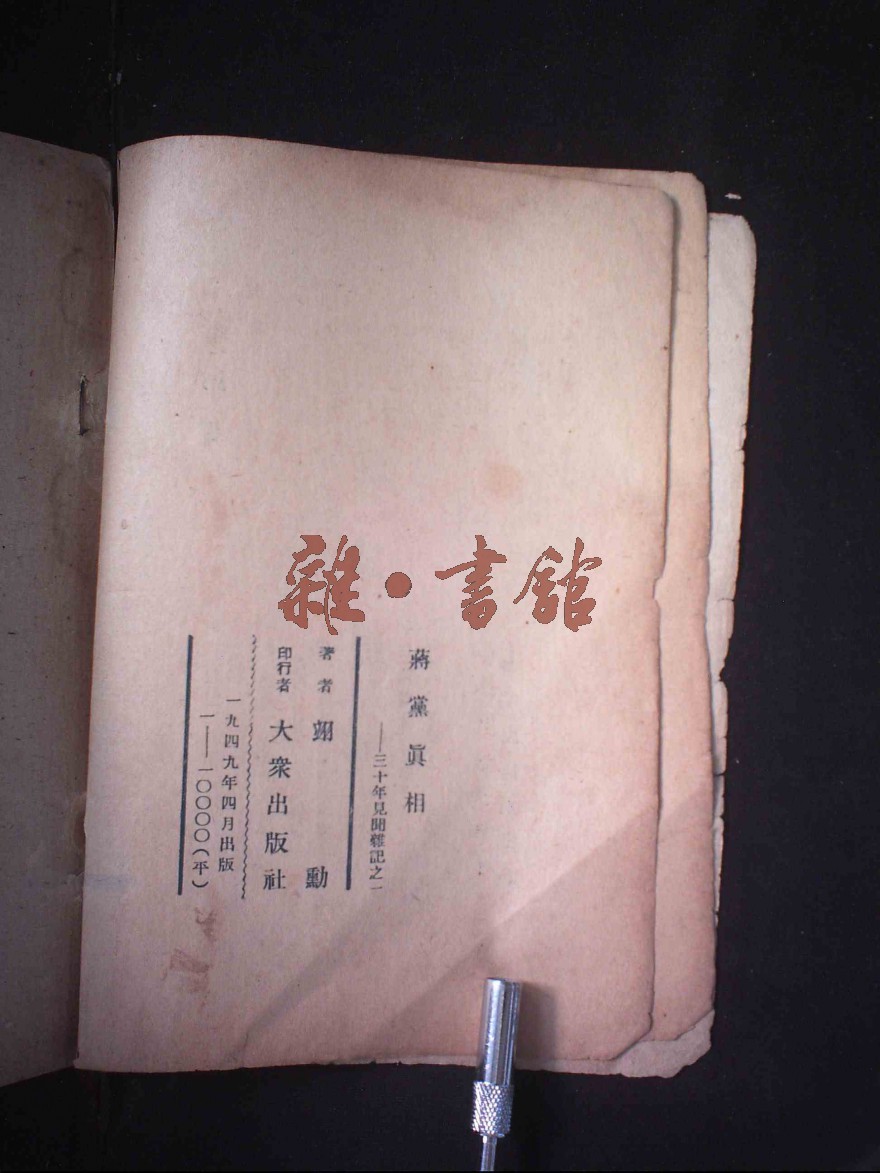 雜·書館
蔣黨眞相
——三十年見聞雜記之一
著者 翊勳
印行者 大衆出版社
一九四九年四月出版
一——一〇〇〇〇(平)